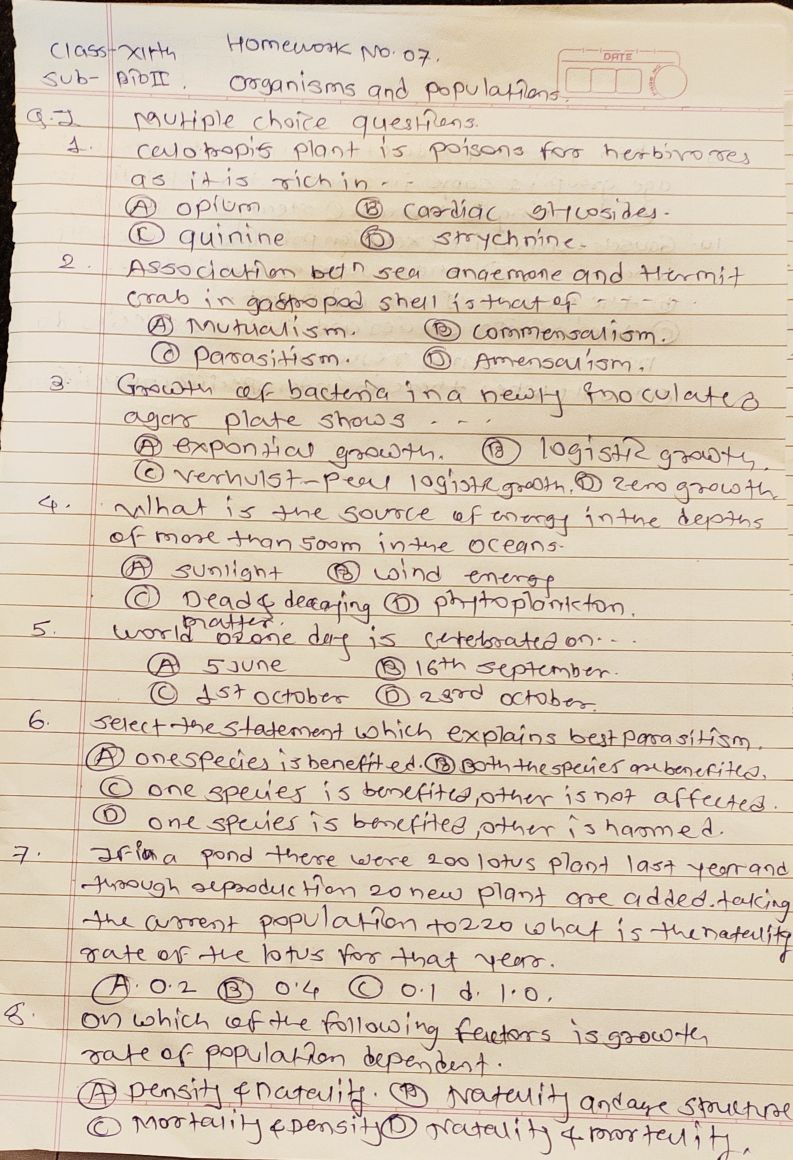 Class-XIIth Homework No. 07.
DATE
Sub- BioII. Organisms and populations.
Q.1 Multiple choice questions.
1. Calotropis plant is poisons for herbivores
as it is rich in ---
(A) opium (B) cardiac glycosides.
(C) quinine (D) strychnine.
2. Association betn sea anaemone and Hermit
crab in gastropod shell is that of - - - -
(A) Mutualism. (B) commensalism.
(C) Parasitism. (D) Amensalism.
3. Growth of bacteria in a newly inoculated
agar plate shows ....
(A) expontial growth. (B) logistic growth.
(C) verhulst-Pearl logistic growth. (D) zero growth
4. What is the source of energy in the depths
of more than 500m in the oceans.
(A) sunlight (B) wind energy
(C) Dead & decaying (D) phytoplankton.
matter.
5. World ozone day is celebrated on...
(A) 5 June (B) 16th september.
(C) 1st october (D) 23rd october.
6. select the statement which explains best parasitism.
(A) one species is benefited. (B) Both the species are benefited.
(C) one species is benefited, other is not affected.
(D) one species is benefited, other is harmed.
7. If in a pond there were 200 lotus plant last year and
through reproduction 20 new plant are added. taking
the current population to 220 what is the natality
rate of the lotus for that year.
(A) 0.2 (B) 0.4 (C) 0.1 d. 1.0.
8. on which of the following factors is growth
rate of population dependent.
(A) Density & natality. (B) Natality and age structure
(C) Mortality & density (D) Natality & mortality.